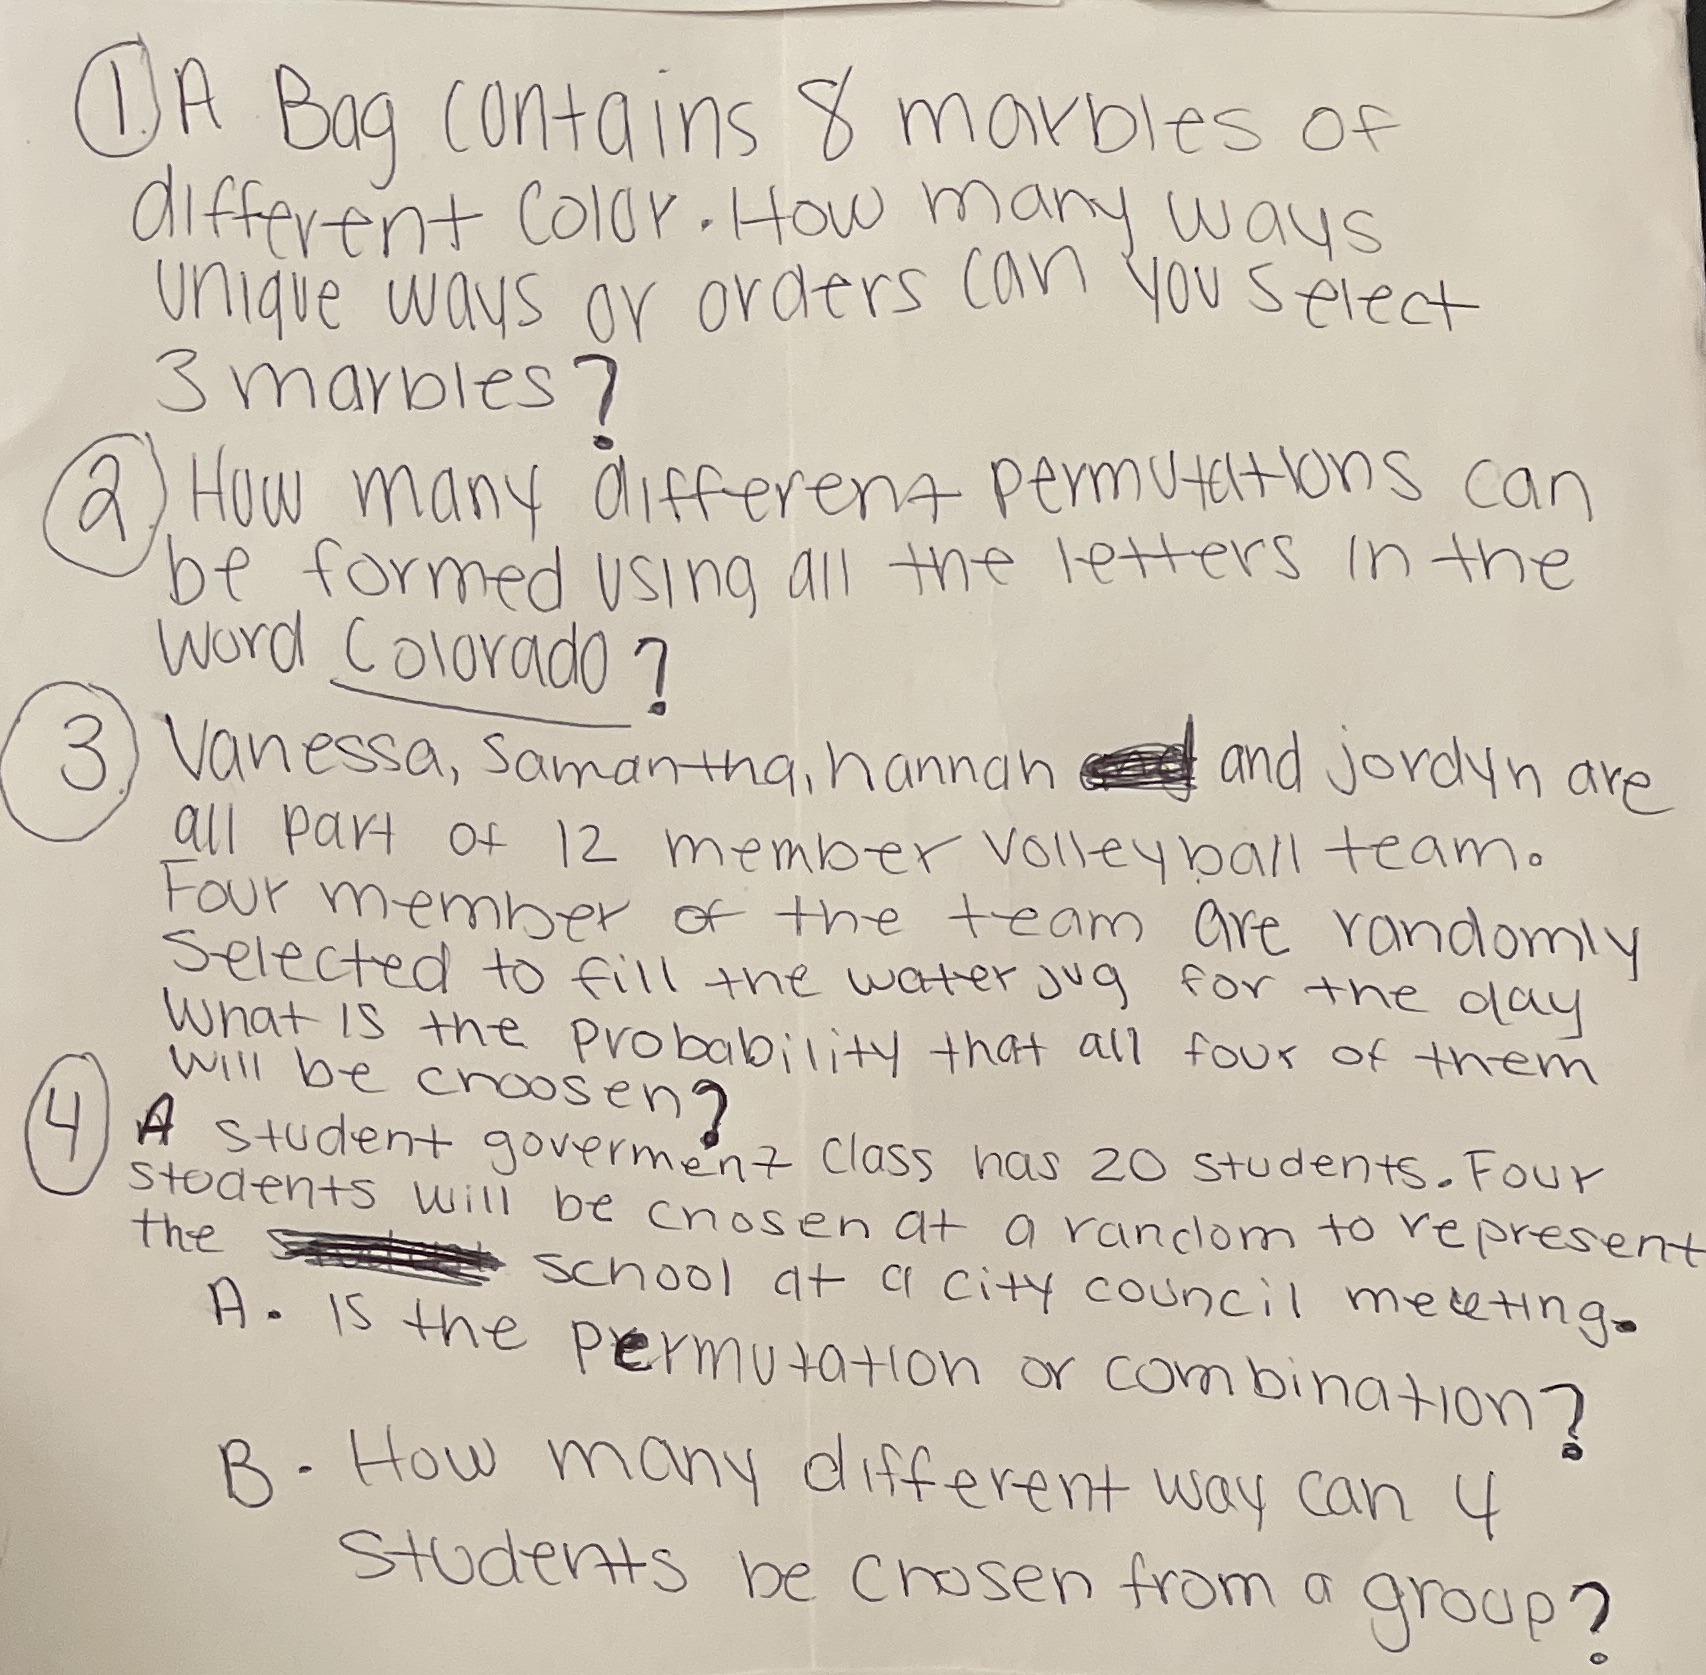 1. A Bag contains 8 marbles of
different color. How many ways
unique ways or orders can you select
3 marbles?
2. How many different permutations can
be formed using all the letters in the
word Colorado?
3. Vanessa, Samantha, hannah and jordyn are
all part of 12 member volleyball team.
Four member of the team are randomly
selected to fill the water jug for the day
What is the probability that all four of them
will be choosen?
4 A student goverment class has 20 students. Four
students will be chosen at a random to represent
the school at a city council meeting.
A. Is the permutation or combination?
B. How many different way can 4
students be chosen from a group?